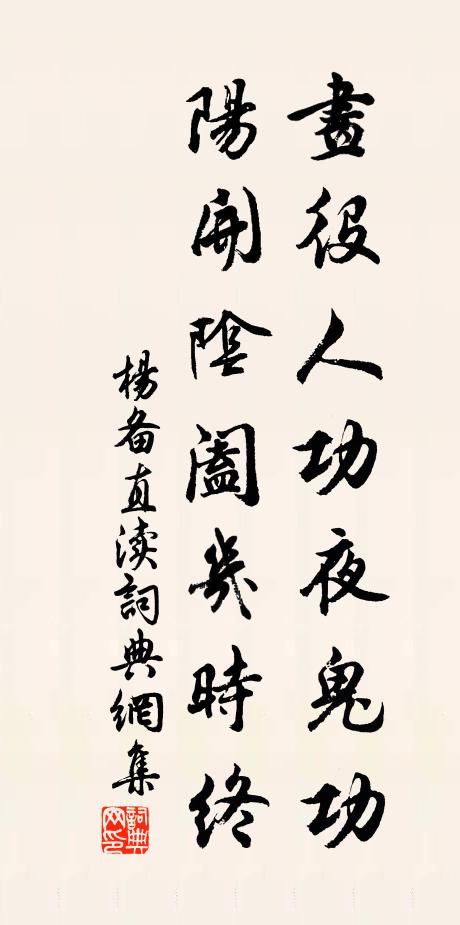 晝役人功夜鬼功
陽開陰闔幾時終
楊备直渎詞典網集
詞典网印